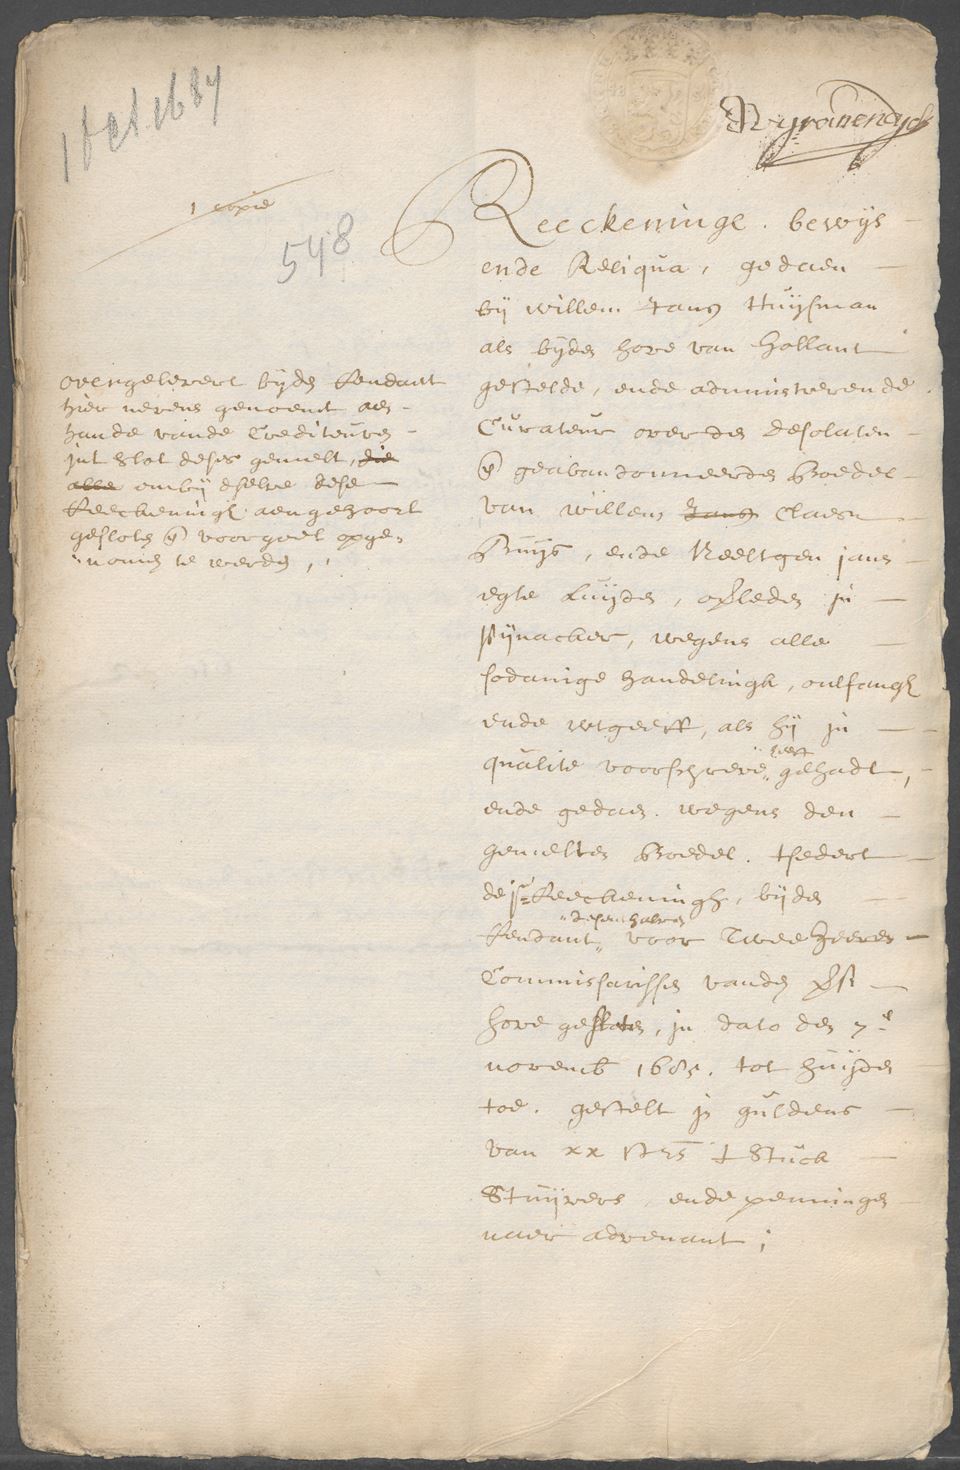 1 oct 1687
1 copie
548
Reeckeninge, bewijs
ende Reliqua, gedaen
bij willem Jans Huijsman
als bijden hove van Hollant
gestelde, ende administrerende
Curateur over den desolaten
en geabandonneerden Boedel
van willem Jans Claesz
Buijs, ende Neeltgen jans
egte Luijden, overleden in
Pijnacker, wegens alle
sodanige handelingh, ontfangh
ende wtgeeff, als hij in
qualite voorschreve heeft gehadt,
ende gedaen wegens den
gemelten Boedel, tsedert
de jste Reeckeningh, bijden
Rendant desenhalven voor Twee Heeren
Commissarissen vanden
hove gesloten, in dato den 7e
novemb 1685, tot huijden
toe, gestelt in guldens
van xx st Stuck
Stuijvers, ende penningen
naer advenant;
overgelevert bijden Rendant
hier nevens genoemt aen
hande vande Crediteuren
int slot deses gemelt, die
alle om bij deselve dese
Reeckeningh aengehoort
gesloten en voor goet opge-
nomen te werden,